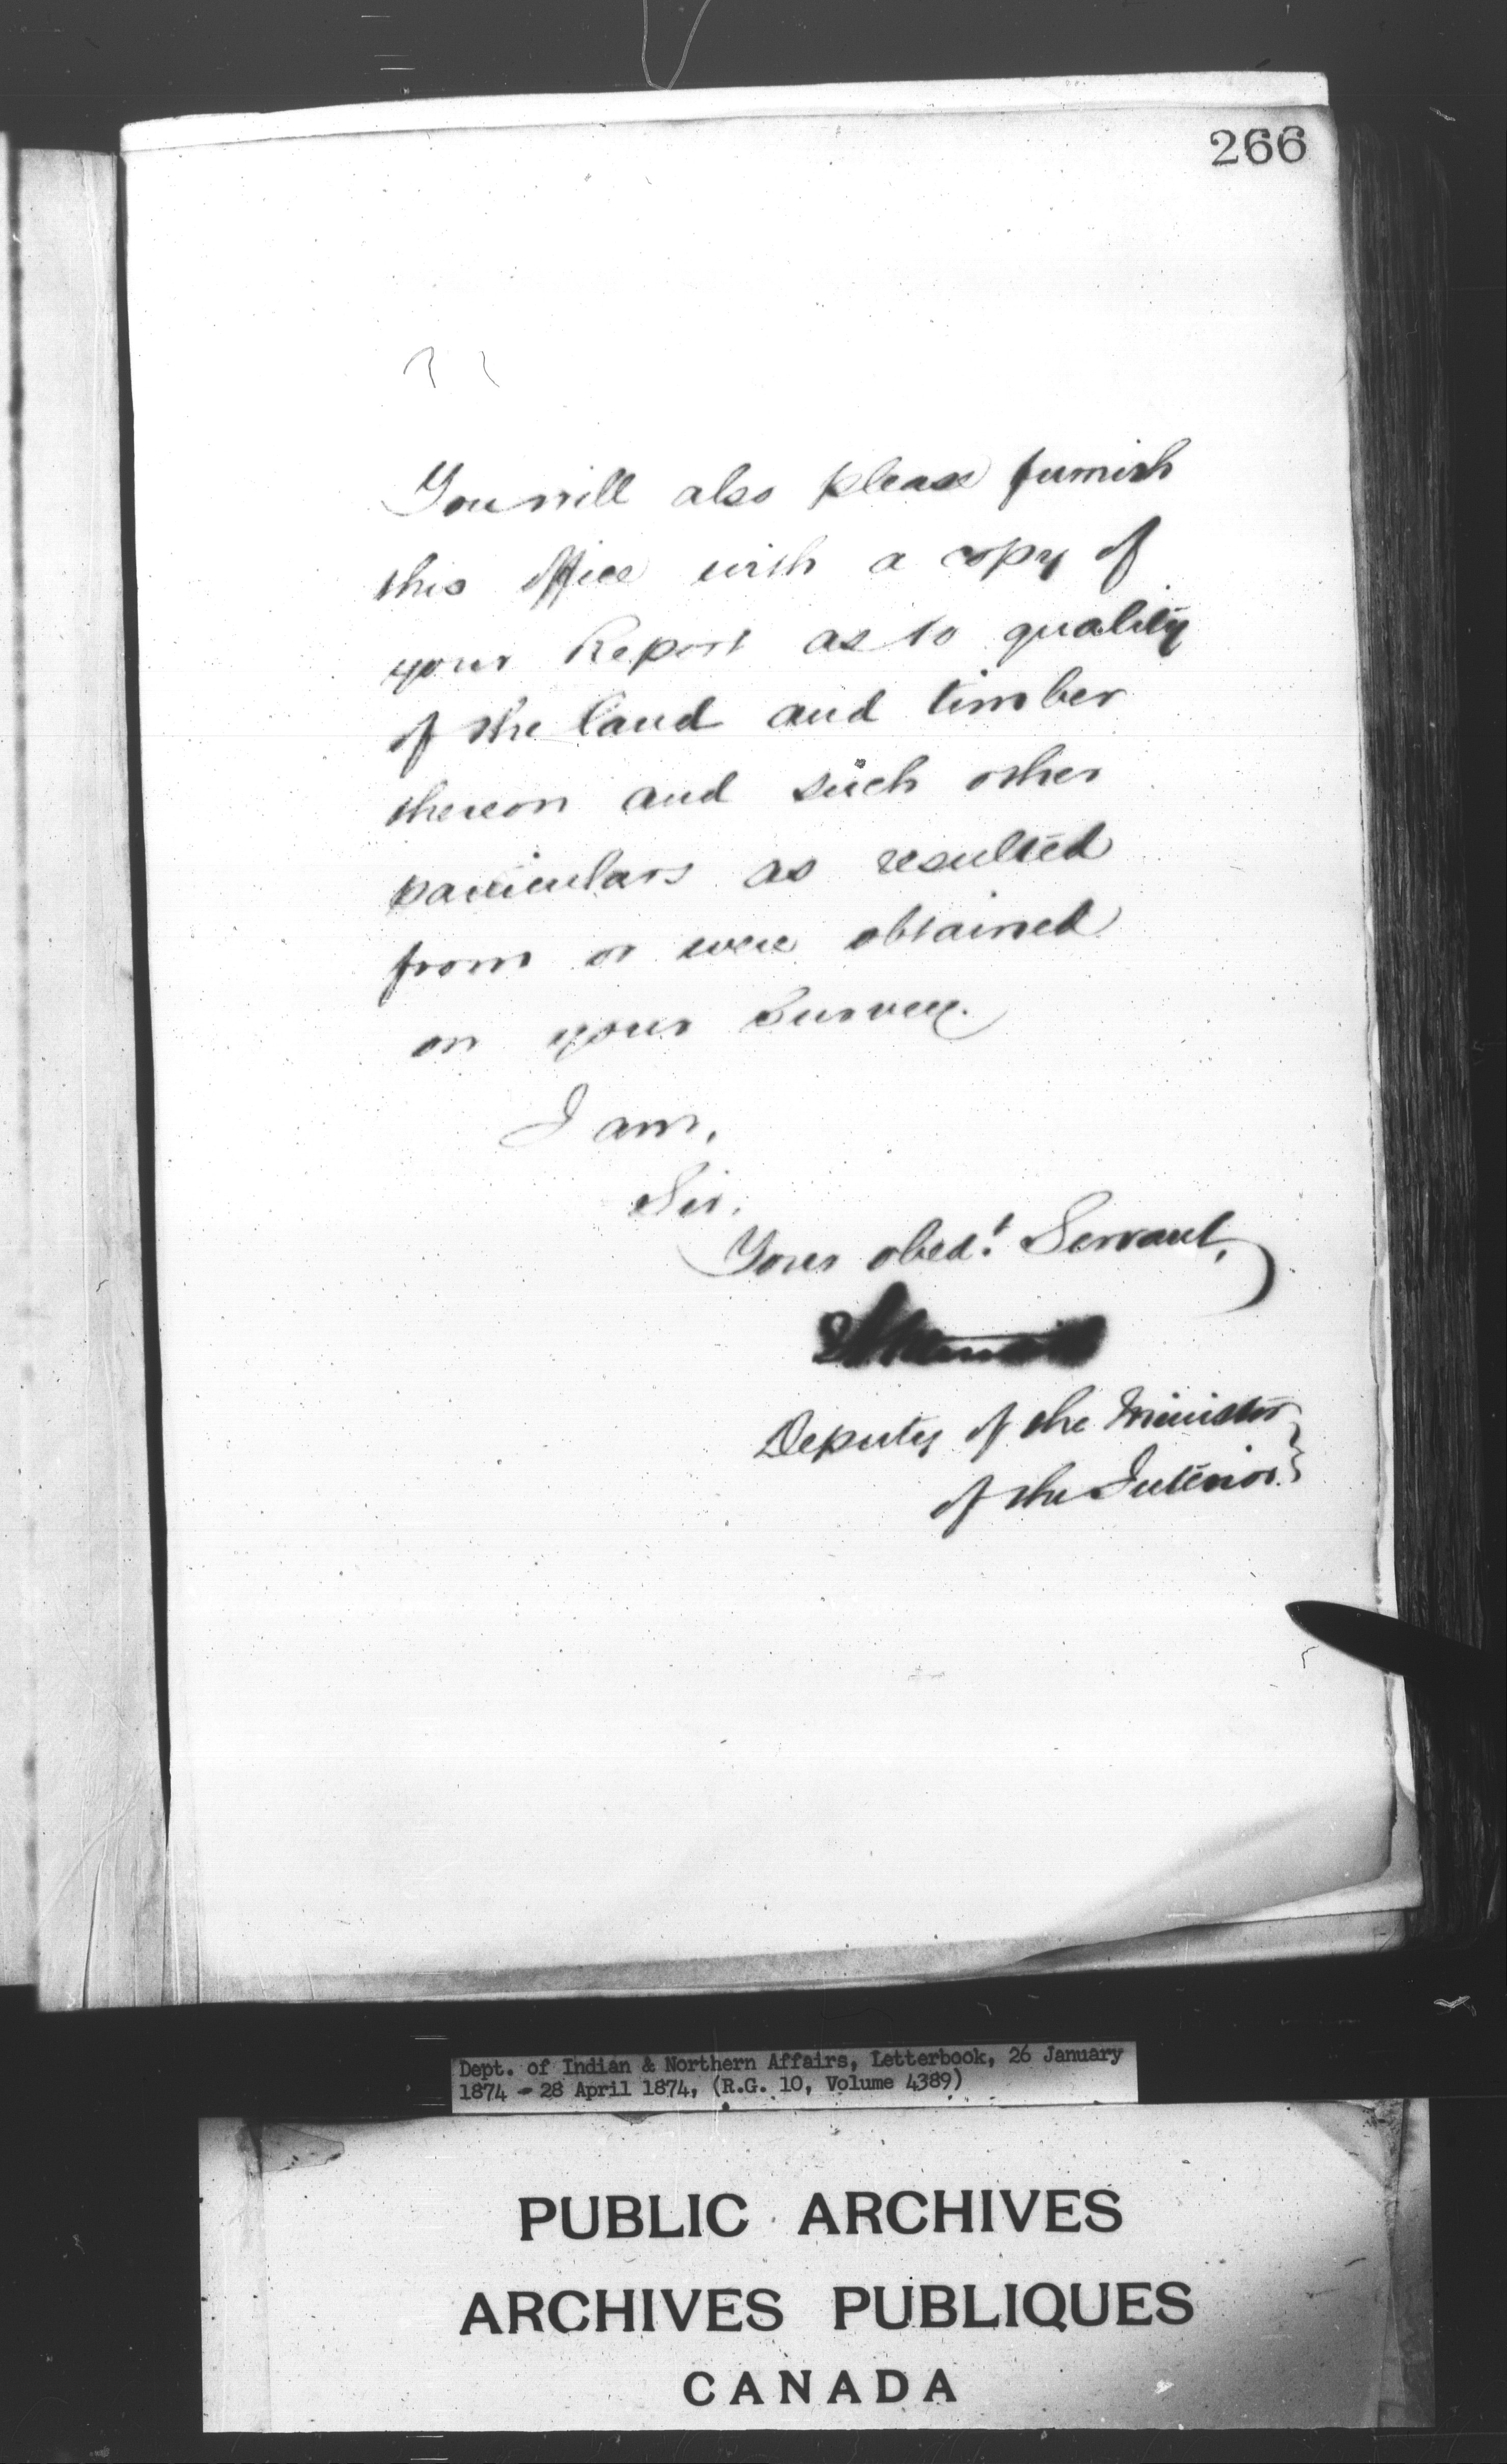 266
You will also please furnish
this office with a copy of
your Report as to quality
of the land and timber
thereon and such other
particulars as resulted
from or were obtained
on your Survey.
I am,
Sir,
Your obedt. Servant,
Deputy of the Minister
of the Interior.
Dept. of Indian & Northern Affairs, Letterbook, 26 January
1874 - 28 April 1874, (R.G. 10, Volume 4389)
PUBLIC ARCHIVES
ARCHIVES PUBLIQUES
CANADA